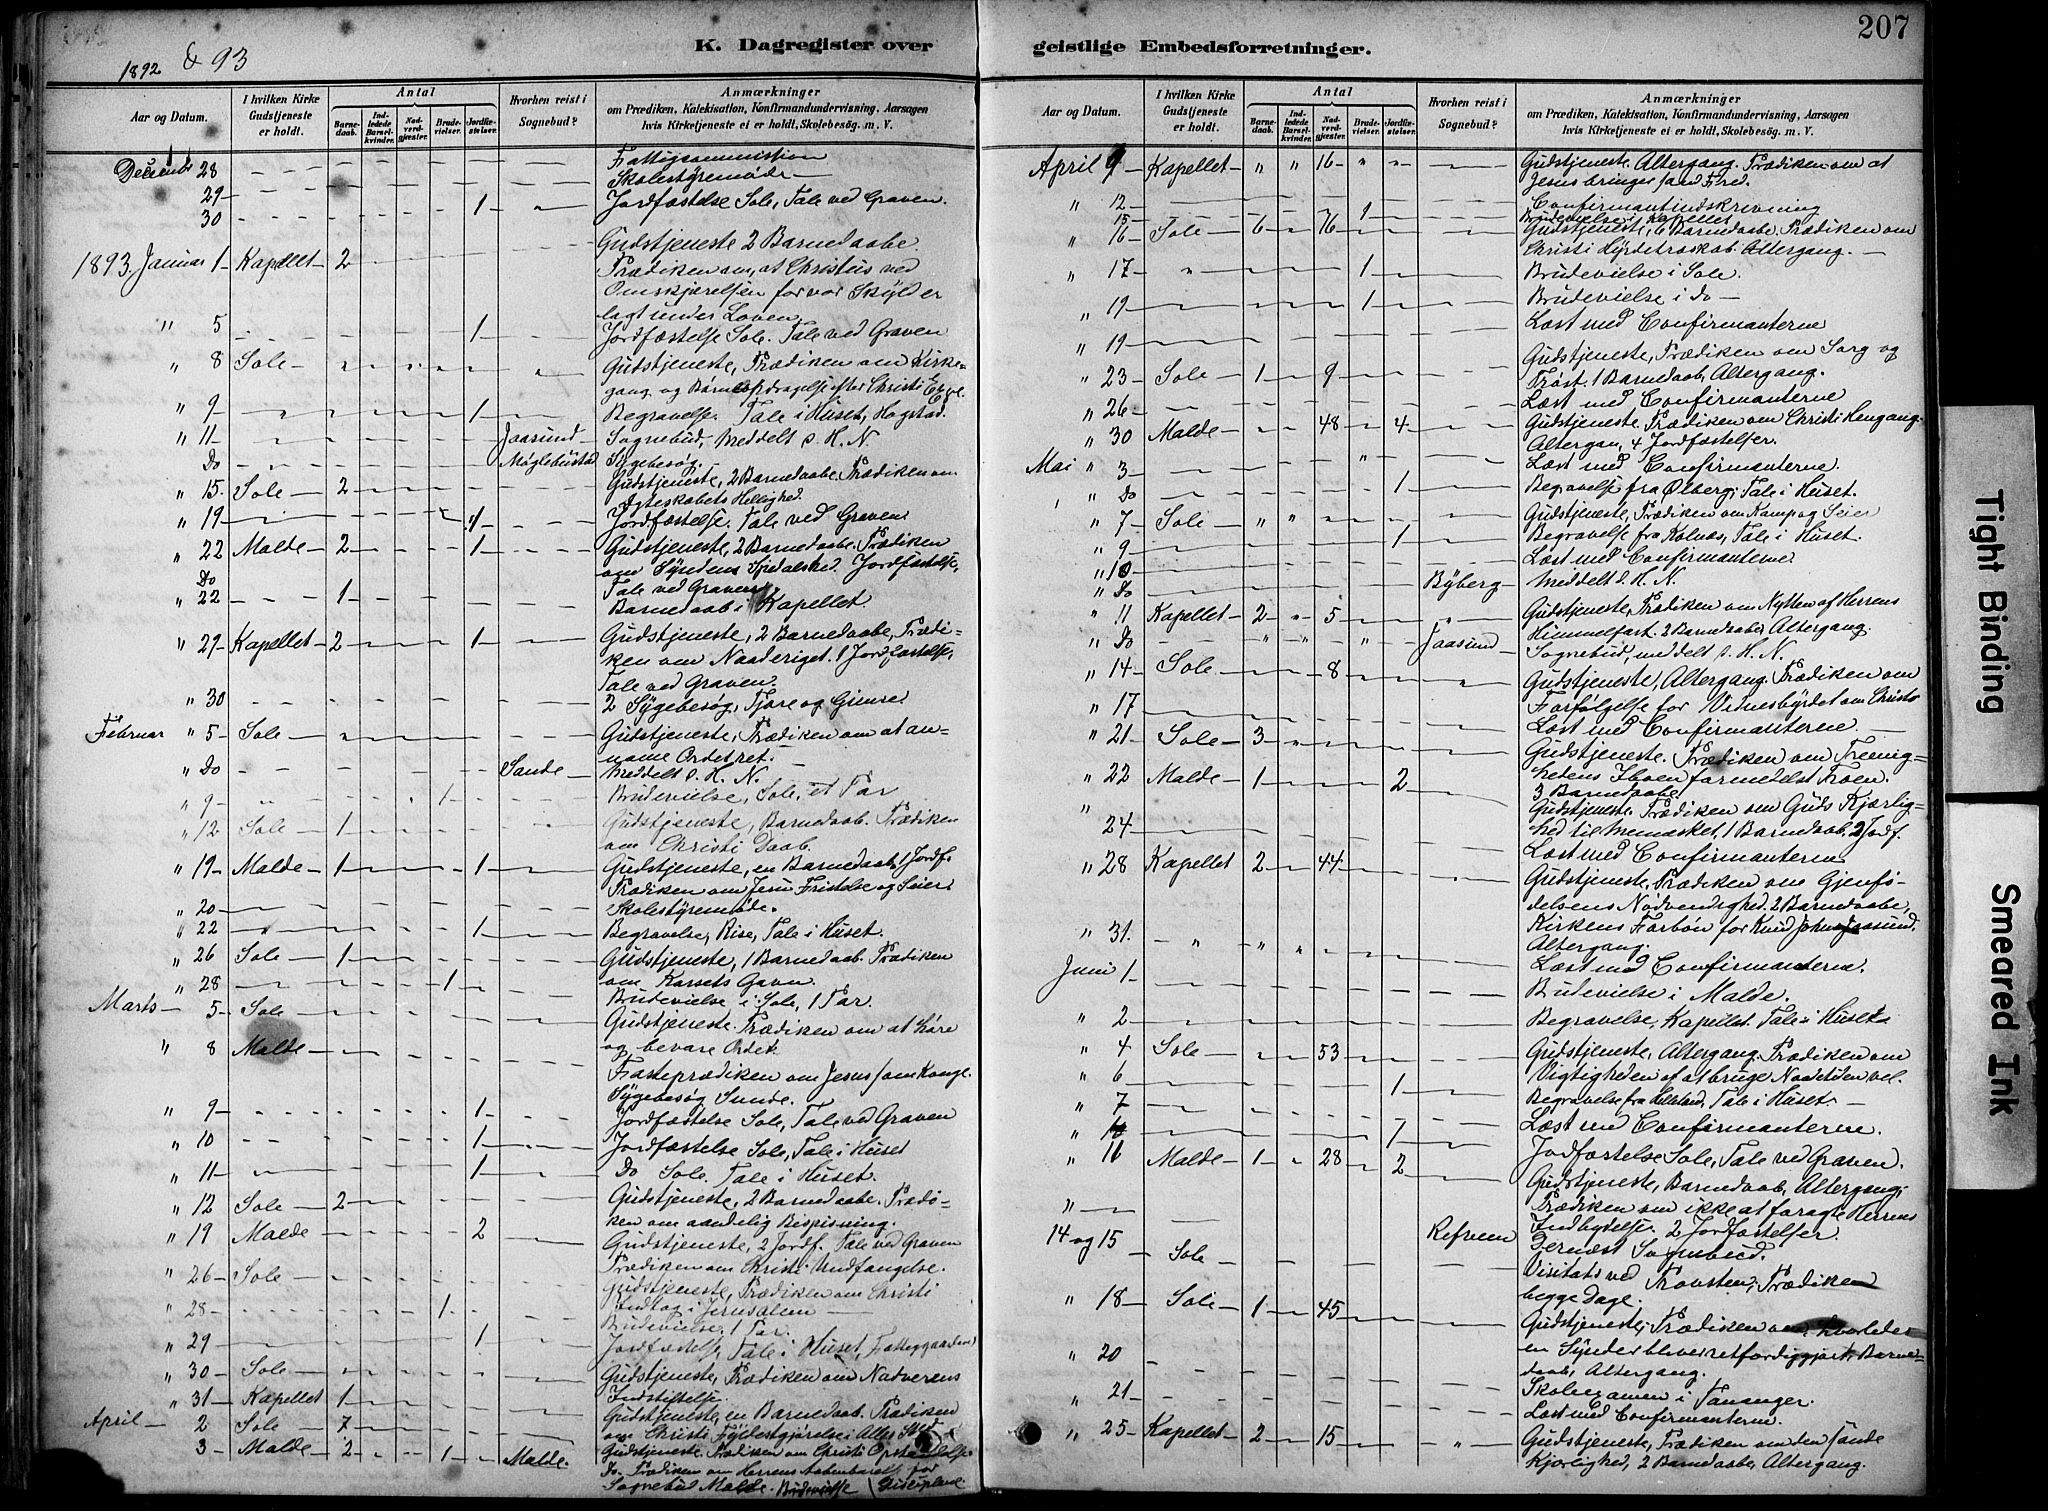 207
K. Dagregister over geistlige Embedsforretninger.
1892 & 93
Aar og Datum.
I hvilken Kirke Gudstjeneste er holdt.
Antal
Barnedaab.
Indledede Barselkvinder.
Nadverdgjester.
Brudevielser.
Jordfæstelser.
Hvorhen reist i Sognebud?
Anmærkninger
om Prædiken, Katekisation, Konfirmandundervisning, Aarsagen
hvis Kirketjeneste ei er holdt, Skolebesøg. m. V.
Decemb 28 Fattigcommission
29 Skolestyremøde
30 1 Jordfæstelse Sole, Tale ved Graven.
1893. Januar 1 Kapellet 2 Gudstjeneste 2 Barnedaabe.
Prædiken om, at Christus ved
Omskjærelsen for vor Skyld er
lagt under Loven.
" 5 1 Jordfæstelse Sole. Tale ved Graven
" 8 Sole Gudstjeneste, Prædiken om Kirke-
gang og Børneopdragelse efter Christi Ex
" 9 1 Begravelse. Tale i Huset, Hogstad.
" 11 Jaasund Sognebud, Meddelt d. H. N
Do Møglebustad Sygebesøg.
" 15 Sole 2 Gudstjeneste, 2 Barnedaabe. Prædiken om
Ægteskabets Hellighed.
" 19 1 Jordfæstelse. Tale ved Graven
" 22 Malde 2 1 Gudstjeneste, 2 Barnedaabe. Prædiken
om Syndens Spedalskhed. Jordfæstelse,
Tale ved Graven
Do
" 22 1 Barnedaab i Kapellet.
" 29 Kapellet 2 1 Gudstjeneste, 2 Barnedaabe, Prædi-
ken om Naaderiget. 1 Jordfæstelse,
Tale ved Graven.
" 30 2 Sygebesøg, Tjore og Gimre
Februar " 5 Sole Gudstjeneste, Prædiken om at an-
name Ordet ret.
" Do Sande Meddelt d. H. N.
" 9 1 Brudevielse, Sole, et Par
" 12 Sole 1 Gudstjeneste, Barnedaab. Prædiken
om Christi Daab.
" 19 Malde 1 1 Gudstjeneste, en Barnedaab, 1 Jordf.
Prædiken om Jesu Fristelse og Seier
" 20 Skolestyremøde.
" 22 1 Begravelse, Rise, Tale i Huset.
" 26 Sole 1 Gudstjeneste, 1 Barnedaab. Prædiken
om Korsets Gavn.
" 28 1 Brudevielse i Sole, 1 Par.
Marts 5 Sole Gudstjeneste. Prædiken om at høre
og bevare Ordet.
" 8 Malde Fasteprædiken om Jesus som Konge.
Sygebesøg Sunde.
" 9 1 Jordfæstelse Sole, Tale ved Graven
" 10 1 Jordfæstelse Sole, Tale i Huset
" 11 1 Do Sole. Tale i Huset.
" 12 Sole 2 Gudstjeneste, 2 Barnedaabe. Prædi-
ken om aandelig Bespisning.
" 19 Malde 2 Gudstjeneste, 2 Jordf. Tale ved Graven
Prædiken om Christi Undfangelse.
" 26 Sole Gudstjeneste, Prædiken om Christi
Indtog i Jerusalem
" 28 1 Brudevielse. 1 Par.
" 29 1 Jordfæstelse, Tale i Huset, Fattiggaarden
" 30 Sole Gudstjeneste, Prædiken om Nadverens
Indstiftelse.
" 31 Kapellet 1 Gudstjeneste, en Barnedaab. Prædiken
om Christi Fyldestgjørelse i Alles Sted
April 2 Sole 7 Gudstjeneste. Prædiken om Christi Opstandelse
3 Malde 2 1 Malde. Do. Prædiken om Herrens Aabenbarelse for
Sognebud Malde. Brudevielse Disciplene
Aar og Datum.
I hvilken Kirke Gudstjeneste er holdt.
Antal
Barnedaab.
Indledede Barselkvinder.
Nadverdgjester.
Brudevielser.
Jordfæstelser.
Hvorhen reist i Sognebud?
Anmærkninger
om Prædiken, Katekisation, Konfirmandundervisning, Aarsagen
hvis Kirketjeneste ei er holdt, Skolebesøg. m. V.
April 9 Kapellet " " 16 " " Gudstjeneste. Altergang. Prædiken om at
Jesus bringer sand Fred.
" 12 Confirmantindskrivning
15 1 Brudevielse i Kapellet
" 16 Sole 6 76 Gudstjeneste, 6 Barnedaabe, Prædiken om
Christi Hyrdetroskab. Altergang.
" 17 " 1 Brudevielse i Sole.
" 19 1 Brudevielse i Do
" 19 Læst med Confirmanterne
" 23 Sole 1 9 Gudstjeneste, Prædiken om Sorg og
Trøst. 1 Barnedaab, Altergang.
" 26 Læst med Confirmanterne
" 30 Malde 48 4 Gudstjeneste. Prædiken om Christi Hengang.
Altergan, 4 Jordfæstelser.
Mai " 3 Læst med Confirmanterne.
" Do 1 Begravelse fra Ølberg; Tale i Huset.
" 7 Sole Gudstjeneste, Prædiken om Kamp og Seier
" 9 1 Begravelse fra Kolnæs, Tale i Huset.
" 10 Læst med Confirmanterne
" Do Byberg Meddelt d. H. N.
" 11 Kapellet 2 5 Gudstjeneste, Prædiken om Nytten af Herrens
Himmelfart. 2 Barnedaabe, Altergang.
" Do Jaasund Sognebud, meddelt d. H. N.
" 14 Sole 8 Gudstjeneste, Altergang. Prædiken om
Forfølgelse for Vidnesbyrdet om Christo
" 17 Læst med Confirmanterne.
" 21 Sole 3 Gudstjeneste. Prædiken om Treenig-
hedens Iboen formedelst Troen.
3 Barnedaabe.
" 22 Malde 1 2 Gudstjeneste. Prædiken om Guds Kjærlig-
hed til Mennesket, 1 Barnedaab, 2 Jordf.
" 24 Læst med Confirmanterne
" 28 Kapellet 2 44 Gudstjeneste. Prædiken om Gjenfø-
delsens Nødvendighed. 2 Barnedaabe,
Kirkens Forbøn for Knud Johns. Jaasund.
Altergang.
" 31. Læst med Confirmanterne.
Juni 1 Brudevielse i Malde.
" 2 Begravelse, Kapellet. Tale i Huset
" 4 Sole 53 Gudstjeneste, Altergang. Prædiken om
Vigtigheden af at bruge Naadetiden vel.
" 6 1 Begravelse fra Tale i Huset.
" 7 Læst med Confirmanterne.
" 10 1 Jordfæstelse Sole, Tale ved Graven.
" 11 Malde 1 28 2 Gudstjeneste, Barnedaab, Altergang,
Prædiken om ikke at foragte Herrens
Indbydelse. 2 Jordfæstelser.
" Refvem Dernæst Sognebud.
14 og 15 Sole Visitats ved Provsten; Prædiken
begge Dage.
" 18 Sole 1 45 Gudstjeneste, Prædiken om hvorledes
en Synder bliver retfærdiggjort, Barne-
daab, Altergang.
" 20 Skoleexamen i Tananger.
" 21 Læst med Confirmanterne.
" 25 Kapellet 2 15 Gudstjeneste, Prædiken om den sande
Kjærlighed, 2 Barnedaabe, Altergang.
Tight Binding
Smeared Ink